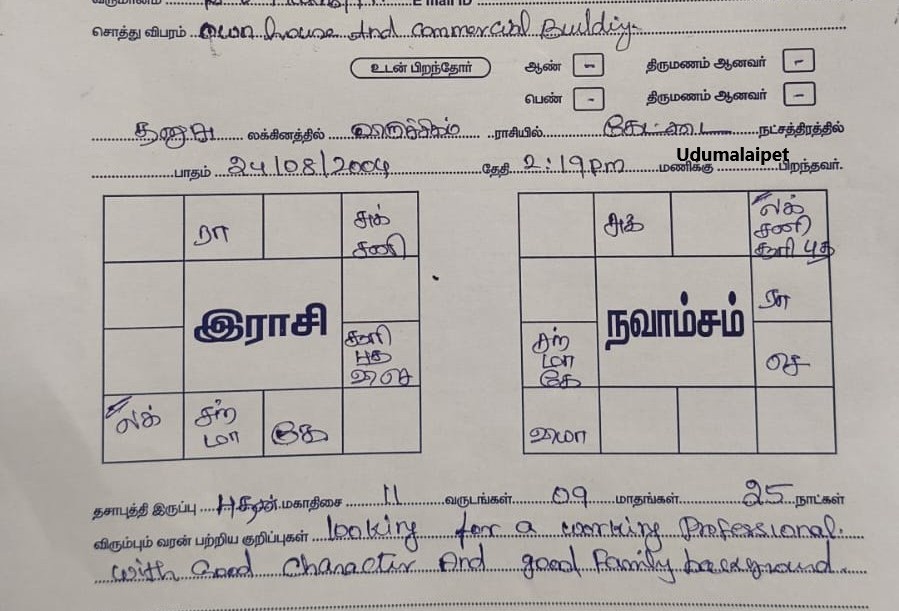 வருமானம் E mail ID
சொத்து விபரம் own house And Commercial Building.
உடன் பிறந்தோர் ஆண் - திருமணம் ஆனவர் -
பெண் - திருமணம் ஆனவர் -
தனுசு லக்கினத்தில் விருச்சிகம் ராசியில் கேட்டை நட்சத்திரத்தில்
Udumalaipet
பாதம் 24/08/2004 தேதி 2:19pm மணிக்கு பிறந்தவர்.
ரா சுக் சனி
சூரி புத வி செ
இராசி
லக் சந் மா கே
சுக் லக் சனி சூரி புத
ரா
சந் மா கே செ
நவாம்சம்
வி மா
தசாபுத்தி இருப்பு புதன் மகாதிசை 11 வருடங்கள் 09 மாதங்கள் 25 நாட்கள்
விரும்பும் வரன் பற்றிய குறிப்புகள் looking for a working Professional.
with Good Character And good Family background.